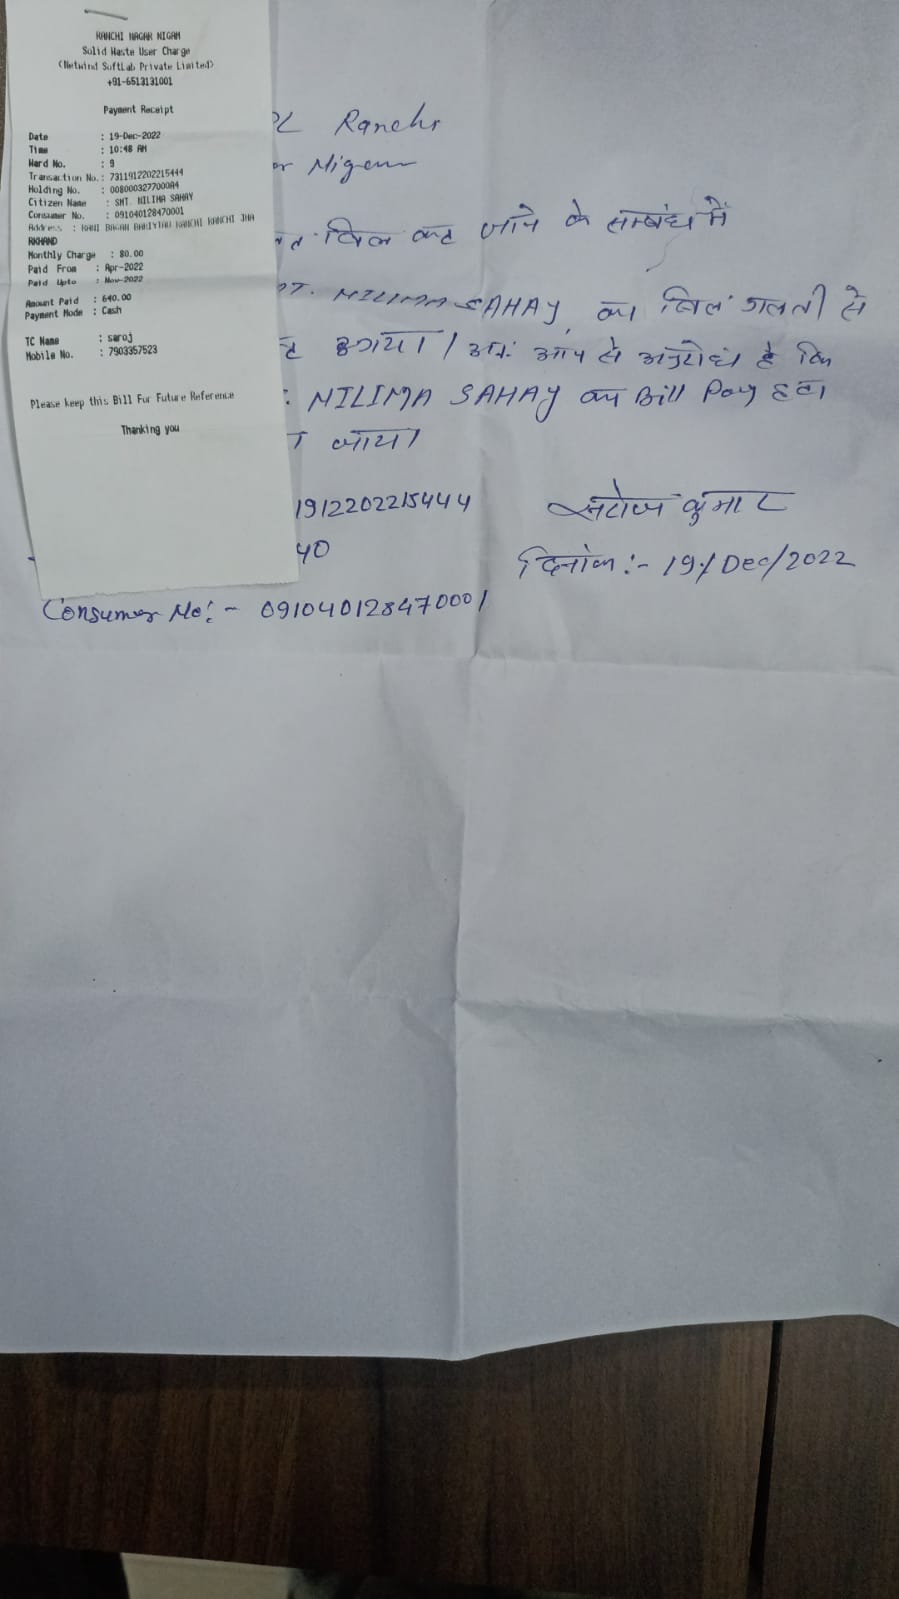 RANCHI NAGAR NIGAM
Solid Waste User Charge
(Netwind SoftLab Private Limited)
+91-6513131001
Payment Receipt
Date : 19-Dec-2022
Time : 10:48 AM
Ward No. : 9
Transaction No.: 7311912202215444
Holding No. : 0080003277000A4
Citizen Name : SMT. NILIMA SAHAY
Consumer No. : 091040128470001
Address : RANI BAGAN BARIYTAU RANCHI RANCHI JHA
RKHAND
Monthly Charge : 80.00
Paid From : Apr-2022
Paid Upto : Nov-2022
Amount Paid : 640.00
Payment Mode : Cash
TC Name : saroj
Mobile No. : 7903357523
Please keep this Bill For Future Reference
Thanking you
Ranchi
Nigam
बिल कट जाने के सम्बंध में
NILIMA SAHAY का बिल गलती से
गया। अतः आप से अनुरोध है कि
NILIMA SAHAY का Bill Pay हटा
जाय।
1912202215444
सरोज कुमार
40
दिनांक :- 19/Dec/2022
Consumer No:- 091040128470001